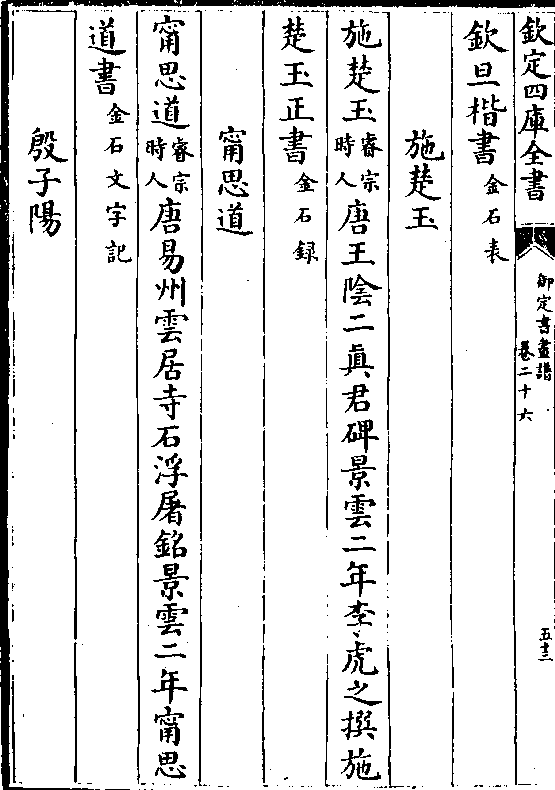 欽定四庫全書
御定書畫譜
卷二十六
五十三
欽旦楷書金石表
施楚玉
施楚玉睿宗時人唐王陰二真君碑景雲二年李虎之撰施
楚玉正書金石録
甯思道
甯思道睿宗時人唐易州雲居寺石浮屠銘景雲二年甯思
道書金石文字記
殷子陽